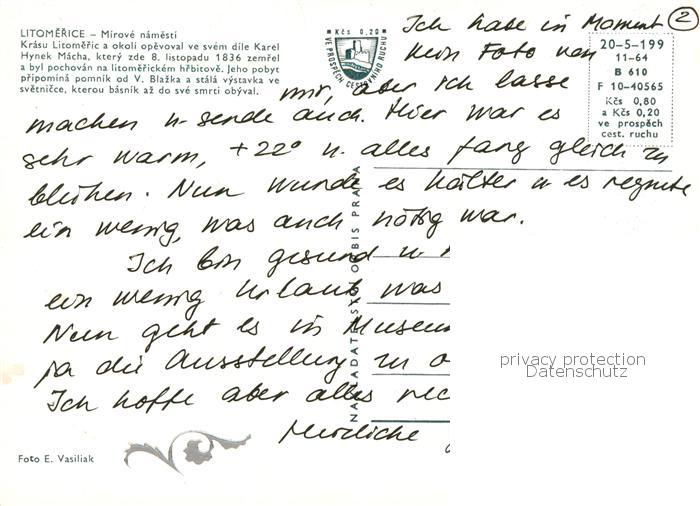 LITOMĚŘICE – Mírové náměstí
Krásu Litoměřic a okolí opěvoval ve svém díle Karel
Hynek Mácha, který zde 8. listopadu 1836 zemřel
a byl pochován na litoměřickém hřbitově. Jeho pobyt
připomíná pomník od V. Blažka a stálá výstavka ve
světničce, kterou básník až do své smrti obýval.
Kčs 0,20
VE PROSPĚCH CESTOVNÍHO RUCHU
2
20-5-199
11-64
B 610
F 10-40565
Kčs 0,80
a Kčs 0,20
ve prospěch
cest. ruchu
Ich habe in Moment
kein Foto von
mir, aber ich lasse
machen u. sende auch. Hier war es
sehr warm, +22° u. alles fang gleich zu
blühen. Nun wurde es kälter u es regnete
ein wenig, was auch nötig war.
Ich bin gesund u.
ein wenig Urlaub was
Nun geht es in Museum
ja die Ausstellung zu
Ich hoffe aber alles
Herzliche
ORBIS PRAHA
privacy protection
Datenschutz
Foto E. Vasiliak